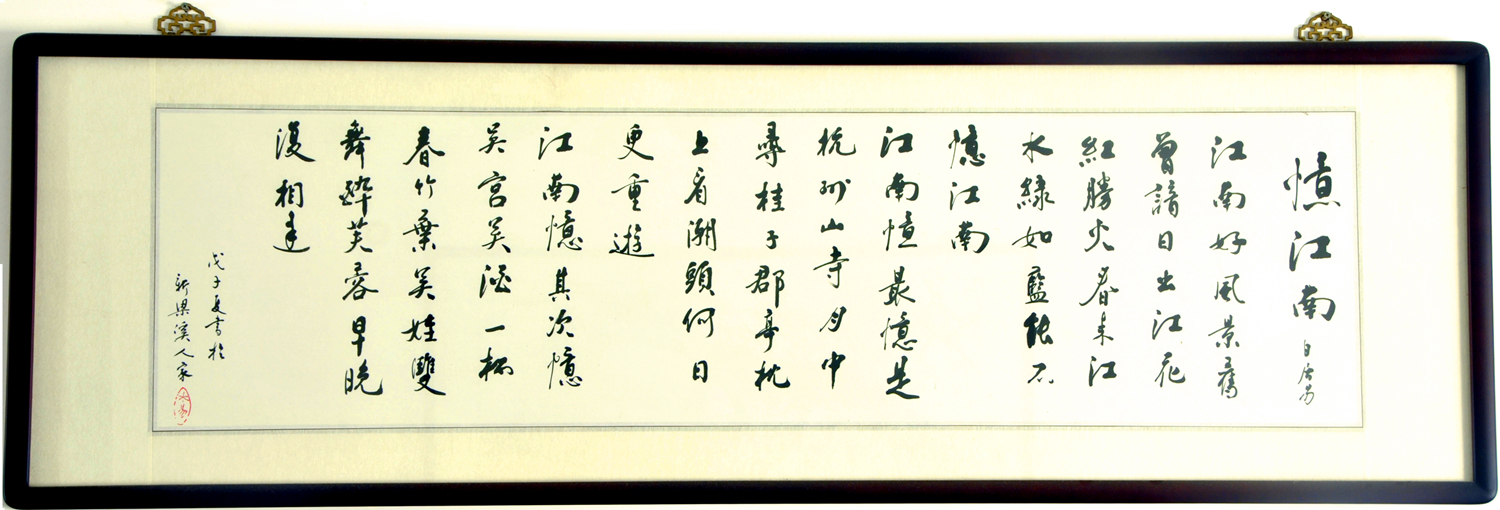 憶江南 白居易
江南好風景舊
曾諳日出江花
紅勝火春来江
水綠如藍能不
憶江南
江南憶最憶是
杭州山寺月中
尋桂子郡亭枕
上看潮頭何日
更重遊
江南憶其次憶
吳宮吳酒一杯
春竹葉吳娃雙
舞醉芙蓉早晚
復相逢
戊子夏書於
新梁溪人家